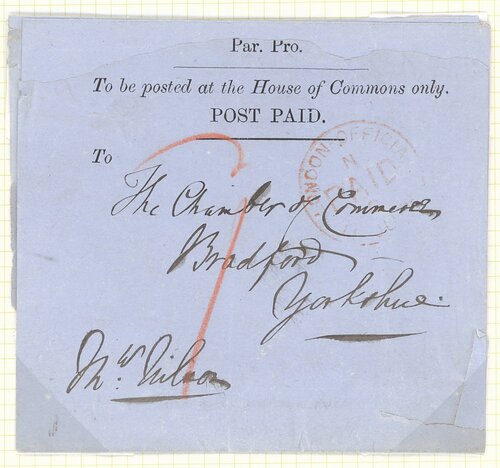 Par. Pro.
To be posted at the House of Commons only.
POST PAID.
To
LONDON OFFICIAL
N
PAID
The Chamber of Commerce
Bradford
Yorkshire